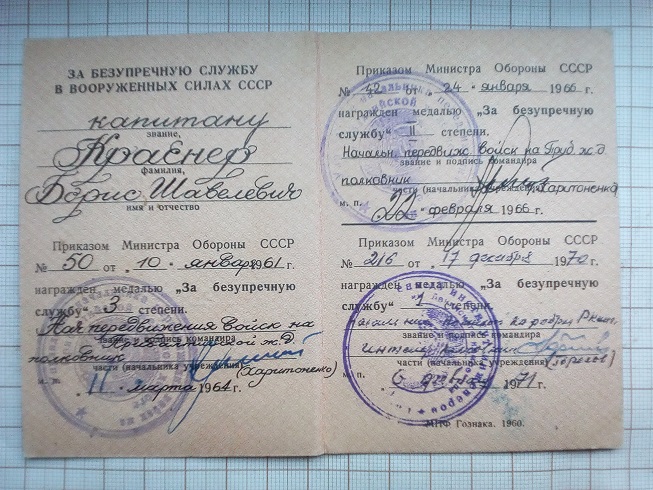 ЗА БЕЗУПРЕЧНУЮ СЛУЖБУ
В ВООРУЖЕННЫХ СИЛАХ СССР
капитану
звание,
Краснер
фамилия,
Борис Шавелевич
имя и отчество
Приказом Министра Обороны СССР
№ 50 от „10“ января 1961 г.
награжден медалью „За безупречную
службу“ 3 степени.
Нач передвижения войск на
звание и подпись командира
ской ж.д.
полковник
части (начальника учреждения)
(Харитоненко)
м. п.
„11“ марта 1964 г.
Приказом Министра Обороны СССР
№ 42 от „24“ января 1966 г.
награжден медалью „За безупречную
службу“ II степени.
Начальн. передвиж войск на ж.д.
звание и подпись командира
полковник
Харитоненко
части (начальника учреждения)
м. п.
„22“ февраля 1966 г.
Приказом Министра Обороны СССР
№ 216 от „17“ декабря 1970 г.
награжден медалью „За безупречную
службу“ 1 степени.
звание и подпись командира
части (начальника учреждения)
м. п.
„6“ 1971 г.
МПФ Гознака. 1960.